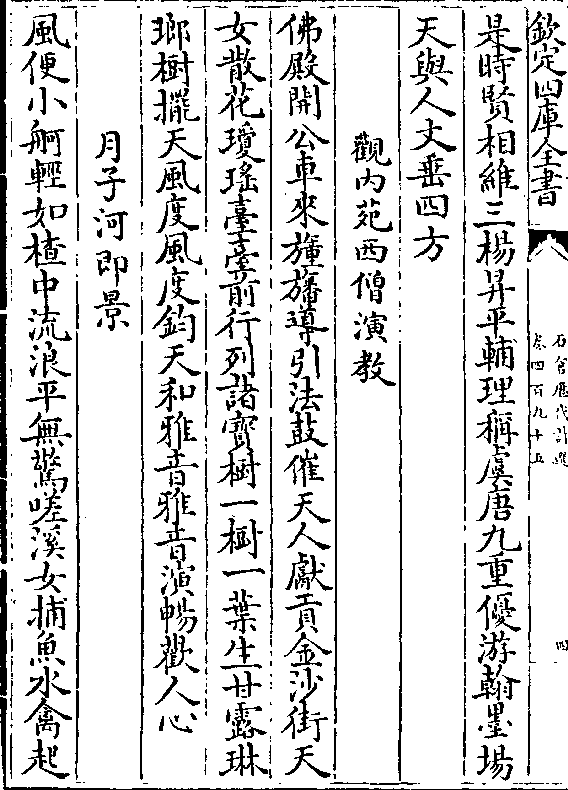 欽定四庫全書
石倉歷代詩選
卷四百九十五
四
是時賢相維三楊昇平輔理稱虞唐九重優游翰墨場
天與人文垂四方
觀內苑西僧演教
佛殿開公車來旛導引法鼓催天人獻貢金沙街天
女散花瓊瑤臺臺前行列諸寶樹一樹一葉生甘露琳
瑯樹擺天風度風度鈞天和雅音雅音演暢歡人心
月子河即景
風便小舸輕如楂中流浪平無驚嗟溪女捕魚水禽起